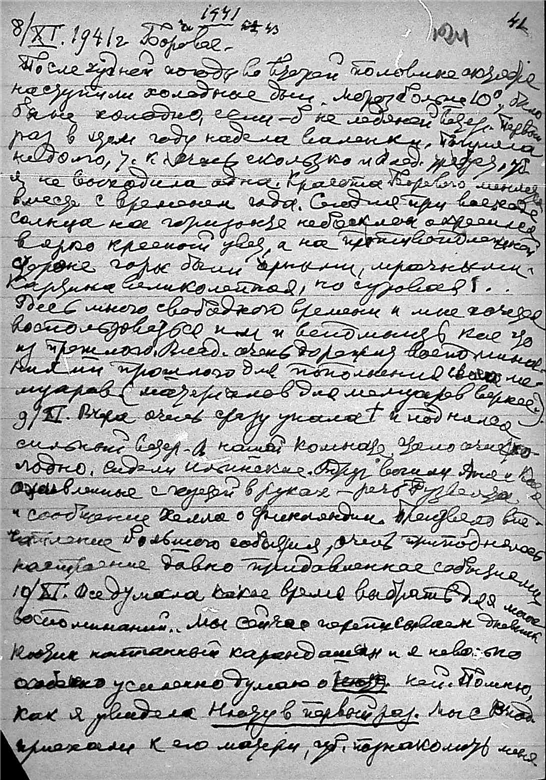 1941
8/XI. 1941 г Боровое.
После чудной погоды во второй половине октября
наступили холодные дни. Мороз больше 10°, было
бы не холодно, если-б не ледяной ветер. Первый
раз в этом году надела валенки. Погуляла
недолго, т. к. скользко и Влад.
я не выходила одна. Красота Борового меняется
вместе с временем года. Сегодня при восходе
солнца на горизонте небосклон окрасился
в ярко красный цвет, а на противоположной
стороне горы были чёрными, мрачными.
Картина великолепная, но суровая!..
Здесь много свободного времени и мне хочется
воспользоваться им и вспомнить кое что
из прошлого. Влад. очень дорожит воспомина-
ниями прошлого для пополнения своих ме-
муаров (материалов для мемуаров вернее).
9/XI. Вчера очень сразу упала t и поднялся
сильный ветер. В нашей комнате стало очень хо-
лодно. Сидели Ильинские. Вдруг вошли Аня и Катя
оживленные с газетой в руках — речь Рузвельта
и сообщение Хелла о Финляндии. Произвело впе-
чатление большого события, очень приподнялось
настроение давно придавленное событиями.
10/XI. Все думала какое время выбрать для моих
воспоминаний.. Мы сейчас переписываем дневник
Нюты написанный карандашом и я невольно
усиленно думаю о ней. Помню,
как я увидела Нюту в первый раз. Мы с Влад.
приехали к его матери, чтб. познакомить меня